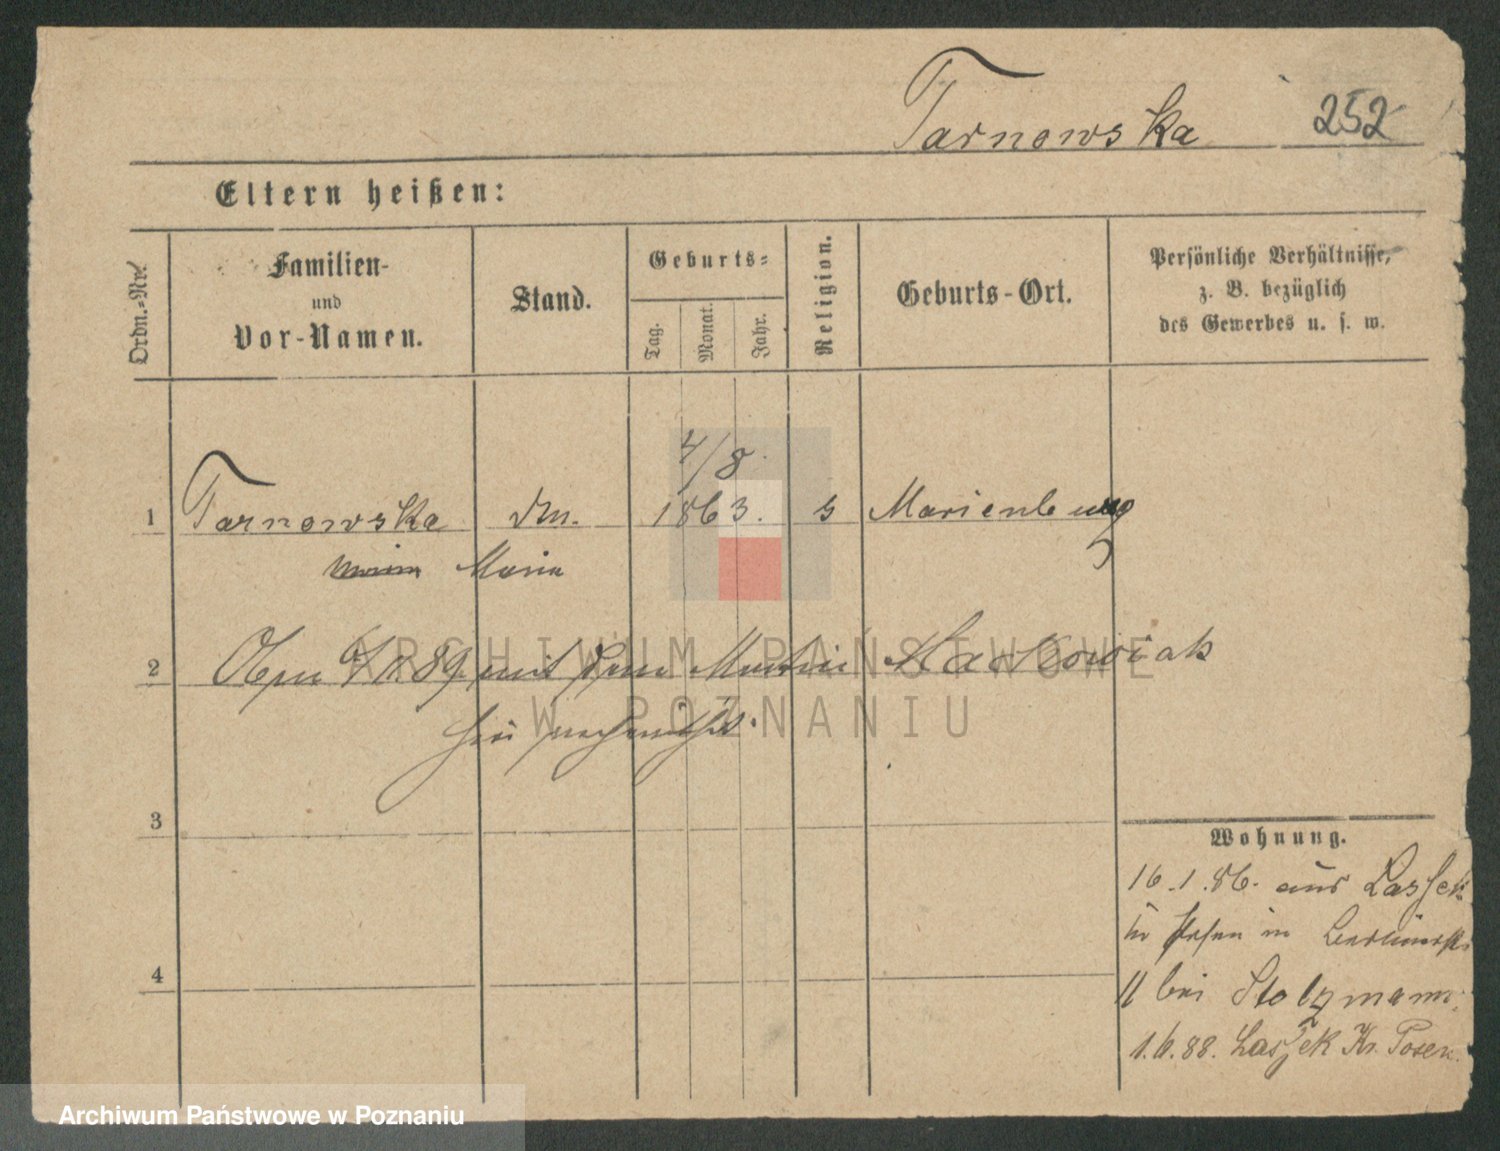 Tarnowska 252
Eltern heißen:
Ordn.-Nr.
Familien-
und
Vor-Namen.
Stand.
Geburts-
Tag.
Monat.
Jahr.
Religion.
Geburts-Ort.
Persönliche Verhältnisse,
z. B. bezüglich
des Gewerbes u. s. w.
4/8
1 Tarnowska 1863. Marienburg
Maria
2 89 mit dem Maćkowiak
3
4
Wohnung.
16.1.86. aus Lassek
in Posen in
11 bei Stolzmann
1.6.88. Lassek Kr. Posen.
ARCHIWUM PAŃSTWOWE
W POZNANIU
Archiwum Państwowe w Poznaniu